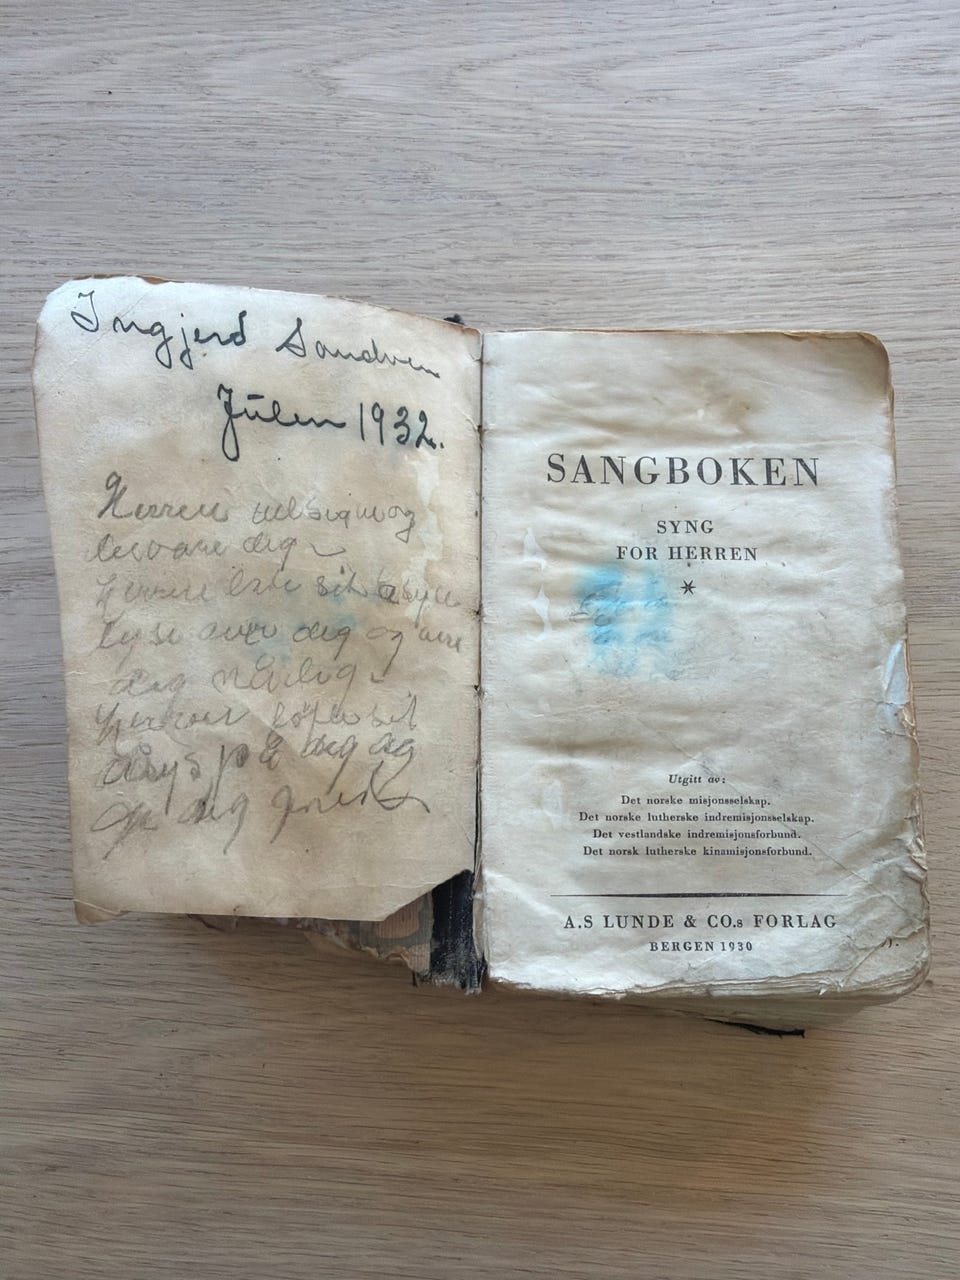 Ingjerd Sandven
Julen 1932.
Herren velsigne og
bevare dig
Herren lade sit åsyn
lyse over dig og være
dig nådig
Herren løfte sit
åsys på dig og
gi dig fred
SANGBOKEN
SYNG
FOR HERREN
Utgitt av:
Det norske misjonsselskap.
Det norske lutherske indremisjonsselskap.
Det vestlandske indremisjonsforbund.
Det norsk lutherske kinamisjonsforbund.
A.S LUNDE & CO.s FORLAG
BERGEN 1930